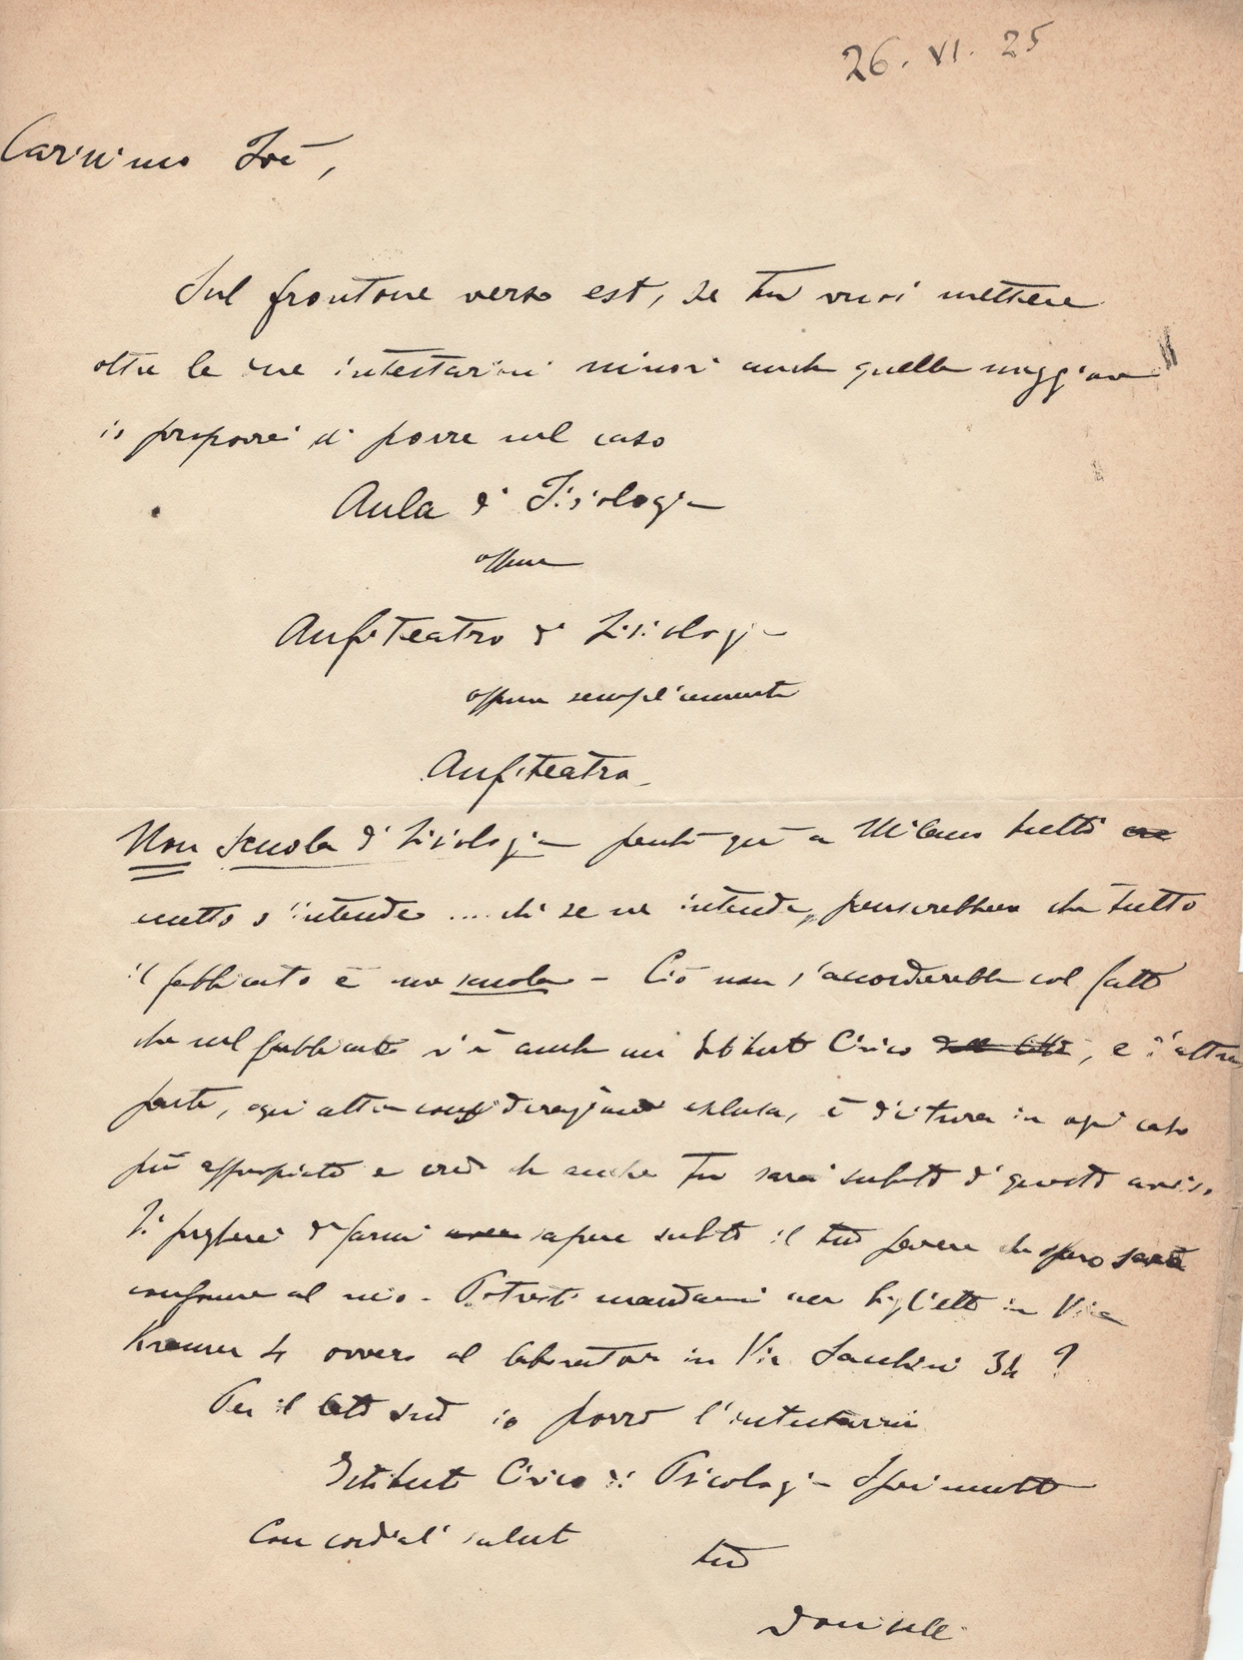 26. VI. 25
Carissimo Foà,
Sul frontone verso est, se tu vuoi mettere
oltre le due intestazioni minori anche quella maggiore
io proporrei di porre nel caso
Aula di Fisiologia
oppure
Anfiteatro di Fisiologia
oppure semplicemente
Anfiteatro
Non scuola di Fisiologia perché qui a Milano tutti
s'intende .... chi se ne intende, penserebbero che tutto
il fabbricato è una scuola - Ciò non s'accorderebbe col fatto
che nel fabbricato v'è anche un Istituto Civico, e d'altra
parte, ogni altra considerazione esclusa, è dicitura in ogni caso
più appropriata e credo che anche tu sarai subito di questo avviso.
Ti pregherei di farmi sapere subito il tuo parere che spero sarà
conforme al mio - Potresti mandarmi un biglietto in Via
Kramer 4 ovvero al laboratorio in Via Sacchini 34 ?
Per il lato sud io porrò l'intestazione
Istituto Civico di Psicologia Sperimentale
Con cordiali saluti
tuo
Doniselli